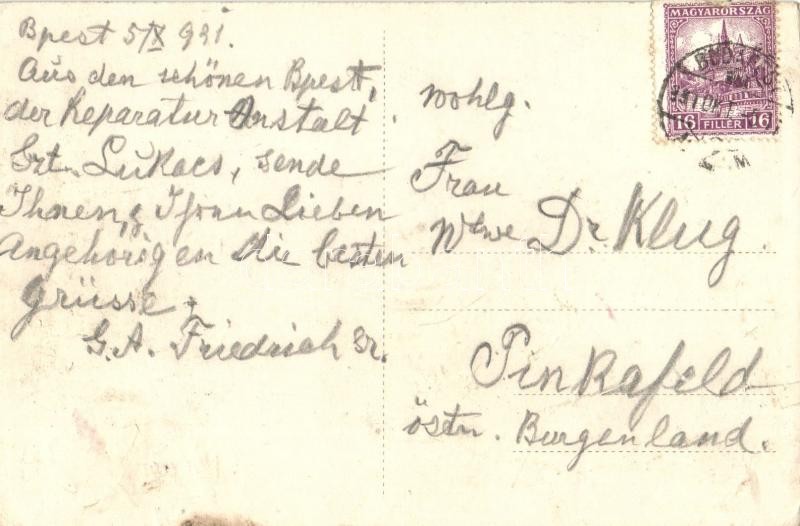 Bpest 5/X 931.
Aus den schönen Bpest,
der Reparatur Anstalt
Szt. Lukacs, sende
Ihnen, & Ihren Lieben
Angehörigen die besten
Grüsse.
G. A. Friedrich Sr.
MAGYARORSZÁG
16 FILLÉR 16
BUDAPEST
Wohlg.
Frau
Wtwe Dr. Klug.
Pinkafeld
östr. Burgenland.